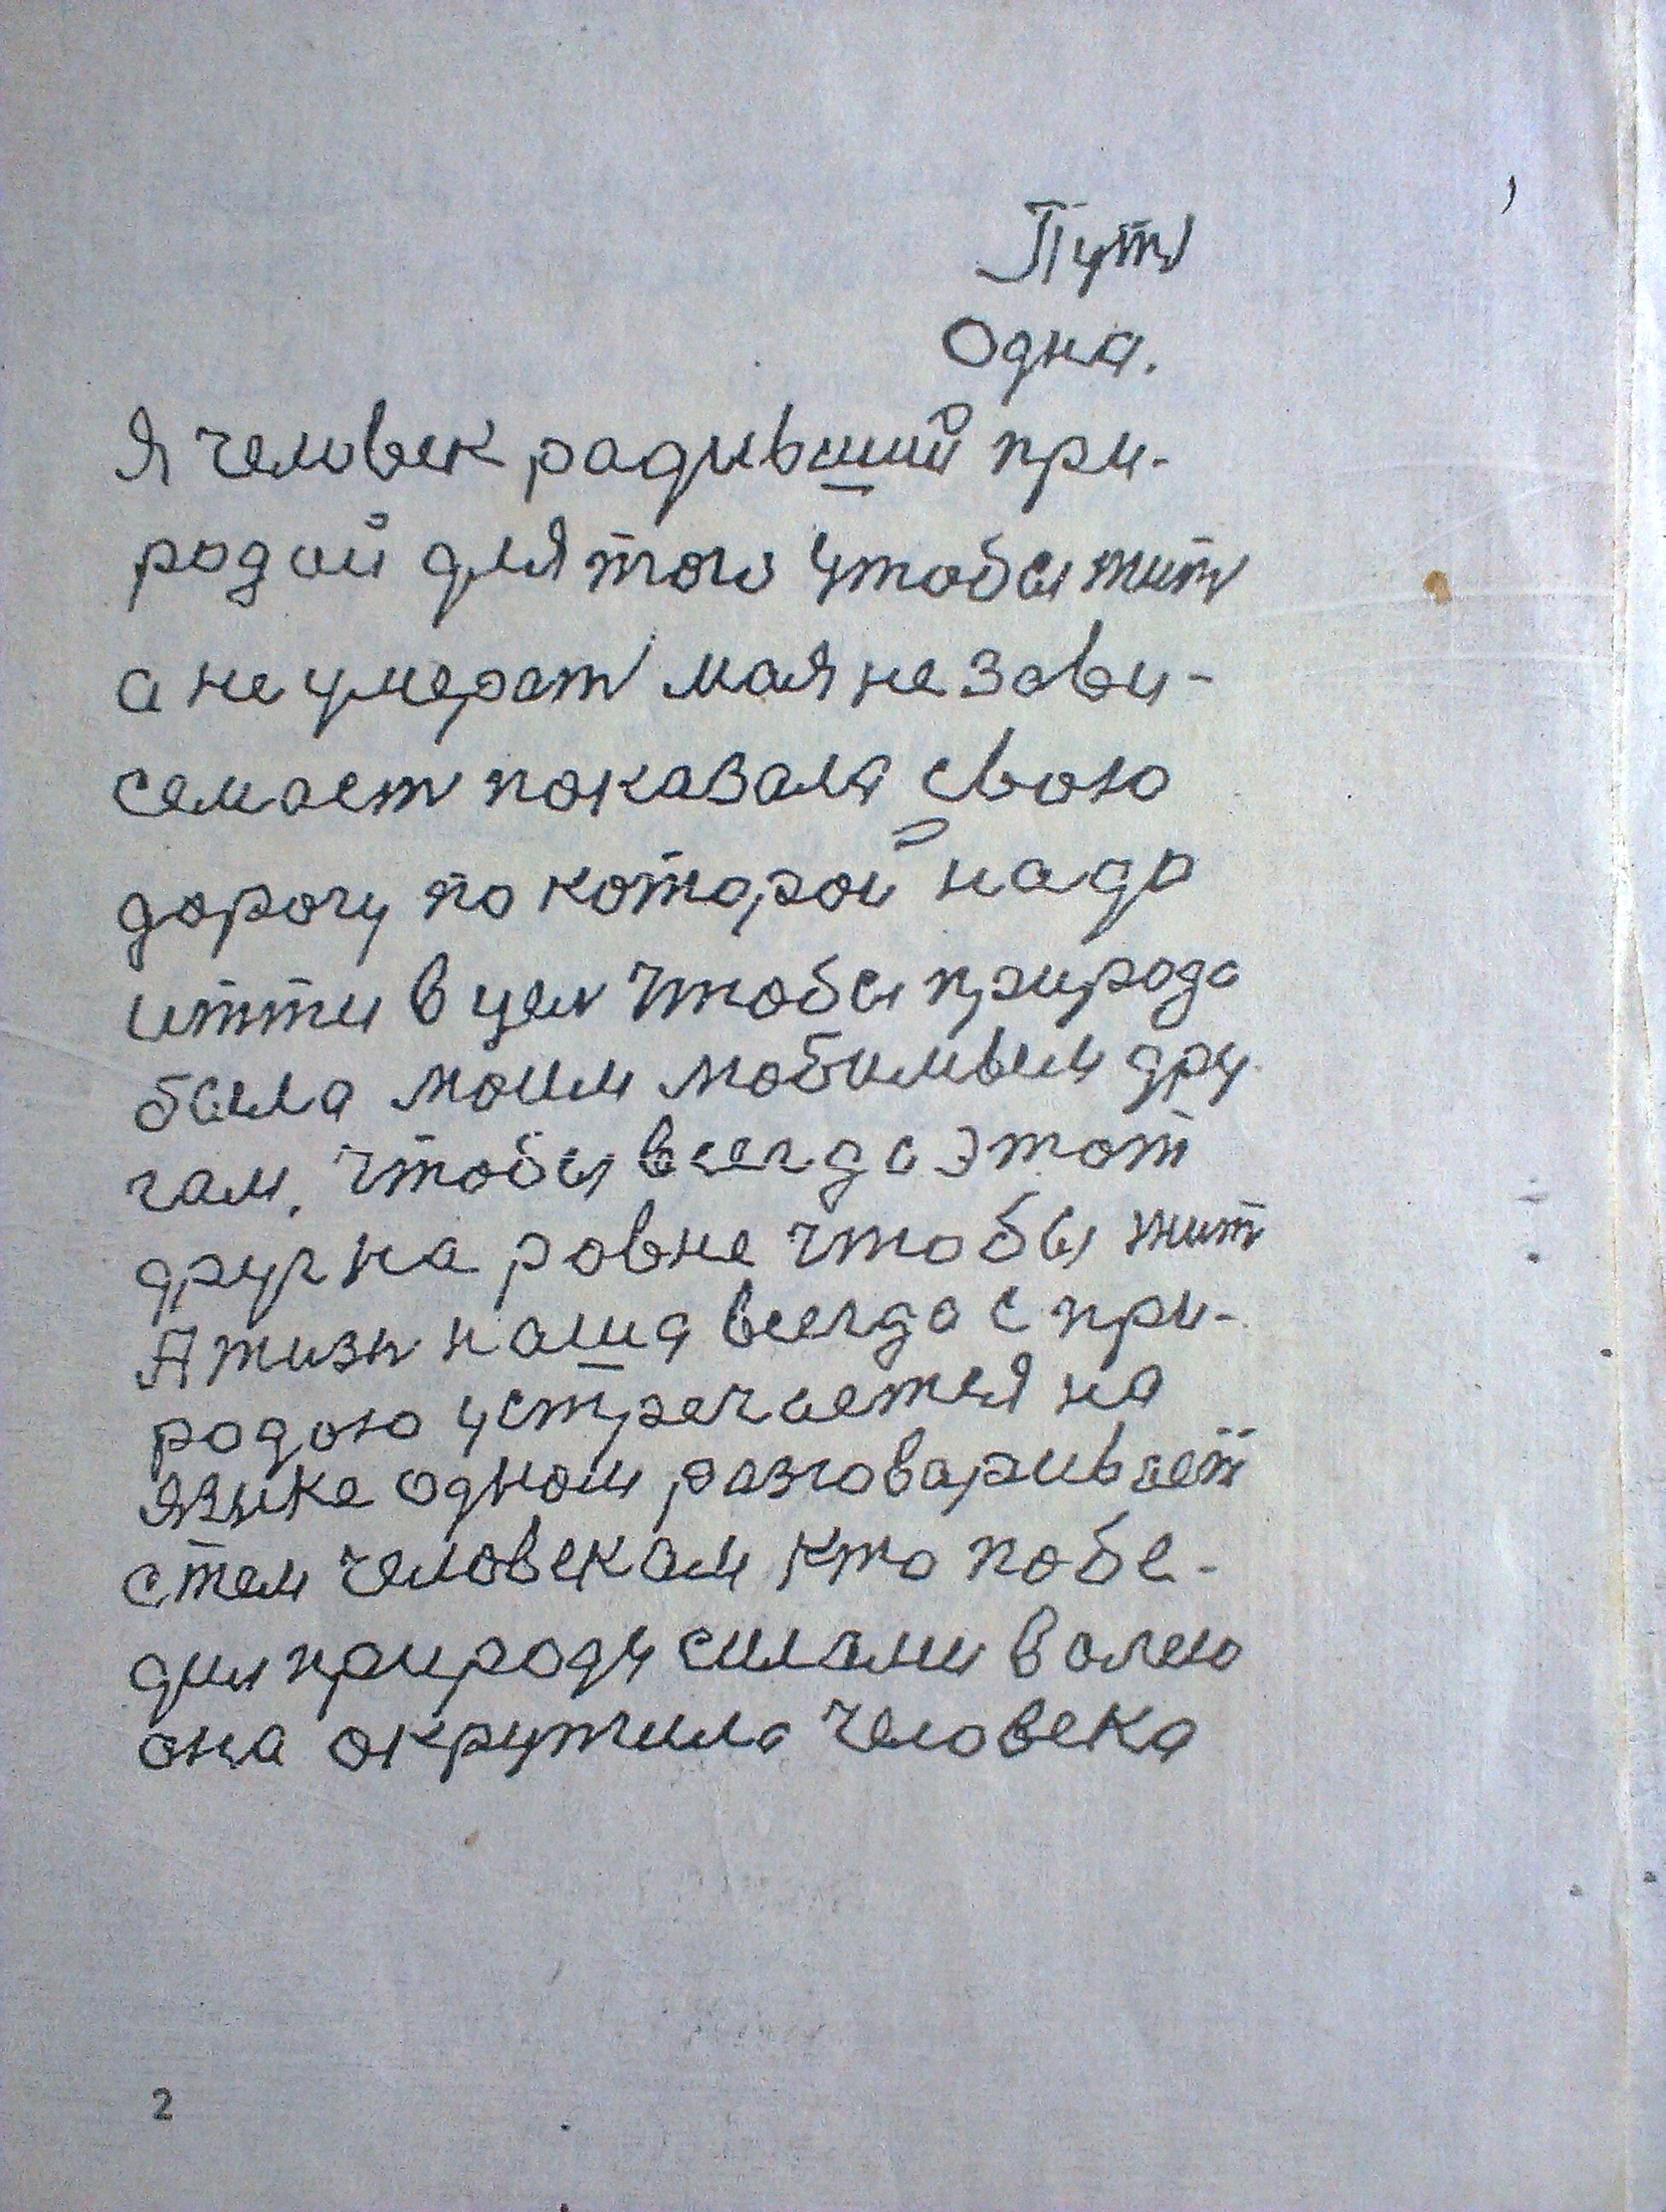 Путь
Одна.
Я человек радивший при-
родой для того чтобы жить
а не умерать мая незави-
семаст показала свою
дорогу по которой надо
итти в цел чтобы природа
была моим любимым дру
гам. чтобы всегда этот
друг на ровне чтобы жит
А жизн наша всегда с при-
родою устречается на
языке одном разговаривает
с тем человекам кто побе-
дил природу силами волею
она окружила человека
2